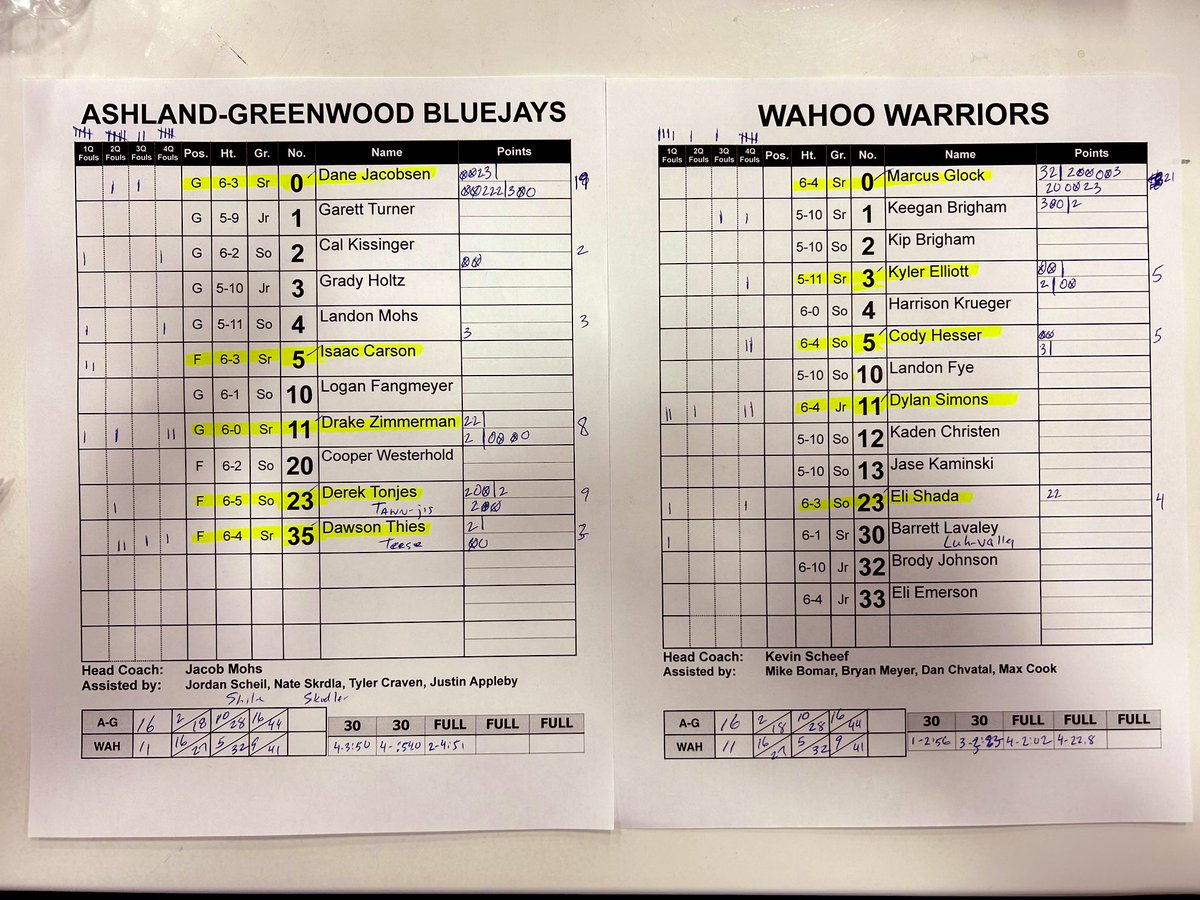 ASHLAND-GREENWOOD BLUEJAYS
1Q Fouls 2Q Fouls 3Q Fouls 4Q Fouls Pos. Ht. Gr. No. Name Points
G 6-3 Sr 0 Dane Jacobsen
G 5-9 Jr 1 Garett Turner
G 6-2 So 2 Cal Kissinger 2
G 5-10 Jr 3 Grady Holtz
G 5-11 So 4 Landon Mohs 3 3
F 6-3 Sr 5 Isaac Carson
G 6-1 So 10 Logan Fangmeyer
G 6-0 Sr 11 Drake Zimmerman 22 8
2
F 6-2 So 20 Cooper Westerhold
F 6-5 So 23 Derek Tonjes 9
Tawn-jis
F 6-4 Sr 35 Dawson Thies 2
Teese
Head Coach: Jacob Mohs
Assisted by: Jordan Scheil, Nate Skrdla, Tyler Craven, Justin Appleby
A-G 16 2/18 10/28 16/44
WAH 11 16/27 5/32 9/41
30 30 FULL FULL FULL
4-3:50 2-4:51
WAHOO WARRIORS
1Q Fouls 2Q Fouls 3Q Fouls 4Q Fouls Pos. Ht. Gr. No. Name Points
6-4 Sr 0 Marcus Glock 21
5-10 Sr 1 Keegan Brigham
5-10 So 2 Kip Brigham
5-11 Sr 3 Kyler Elliott 5
6-0 So 4 Harrison Krueger
6-4 So 5 Cody Hesser 5
3
5-10 So 10 Landon Fye
6-4 Jr 11 Dylan Simons
5-10 So 12 Kaden Christen
5-10 So 13 Jase Kaminski
6-3 So 23 Eli Shada 22 4
6-1 Sr 30 Barrett Lavaley
Luh-valley
6-10 Jr 32 Brody Johnson
6-4 Jr 33 Eli Emerson
Head Coach: Kevin Scheef
Assisted by: Mike Bomar, Bryan Meyer, Dan Chvatal, Max Cook
A-G 16 2/18 10/28 16/44
WAH 11 16/27 5/32 9/41
30 30 FULL FULL FULL
1-2:56 4-2:02 4-22.8